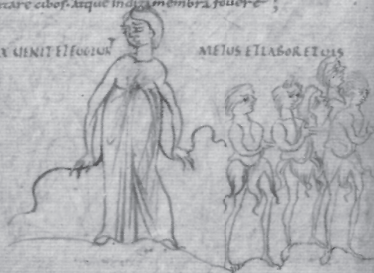 tare cibos. Atque indiga membra fouere;
X UENIT ET FUGIUNT METUS ET LABOR ET UIS